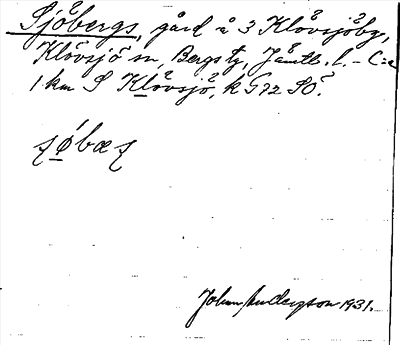 Sjöbergs, gård å 3 Klövsjöby,
Klövsjö sn, Bergs tg, Jämtl. l. – C:a
1 km S Klövsjö, k G 72 SO.
Johan 1931.